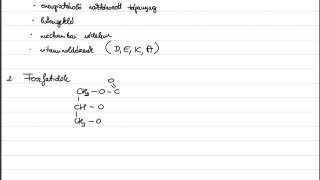 · energiatároló raktározott tápanyag
· hőszigetelő
· mechanikai védelem
· vitaminoldószer (D, E, K, A)
2. Foszfatidok
O
CH₂ – O – C
CH – O
CH₂ – O